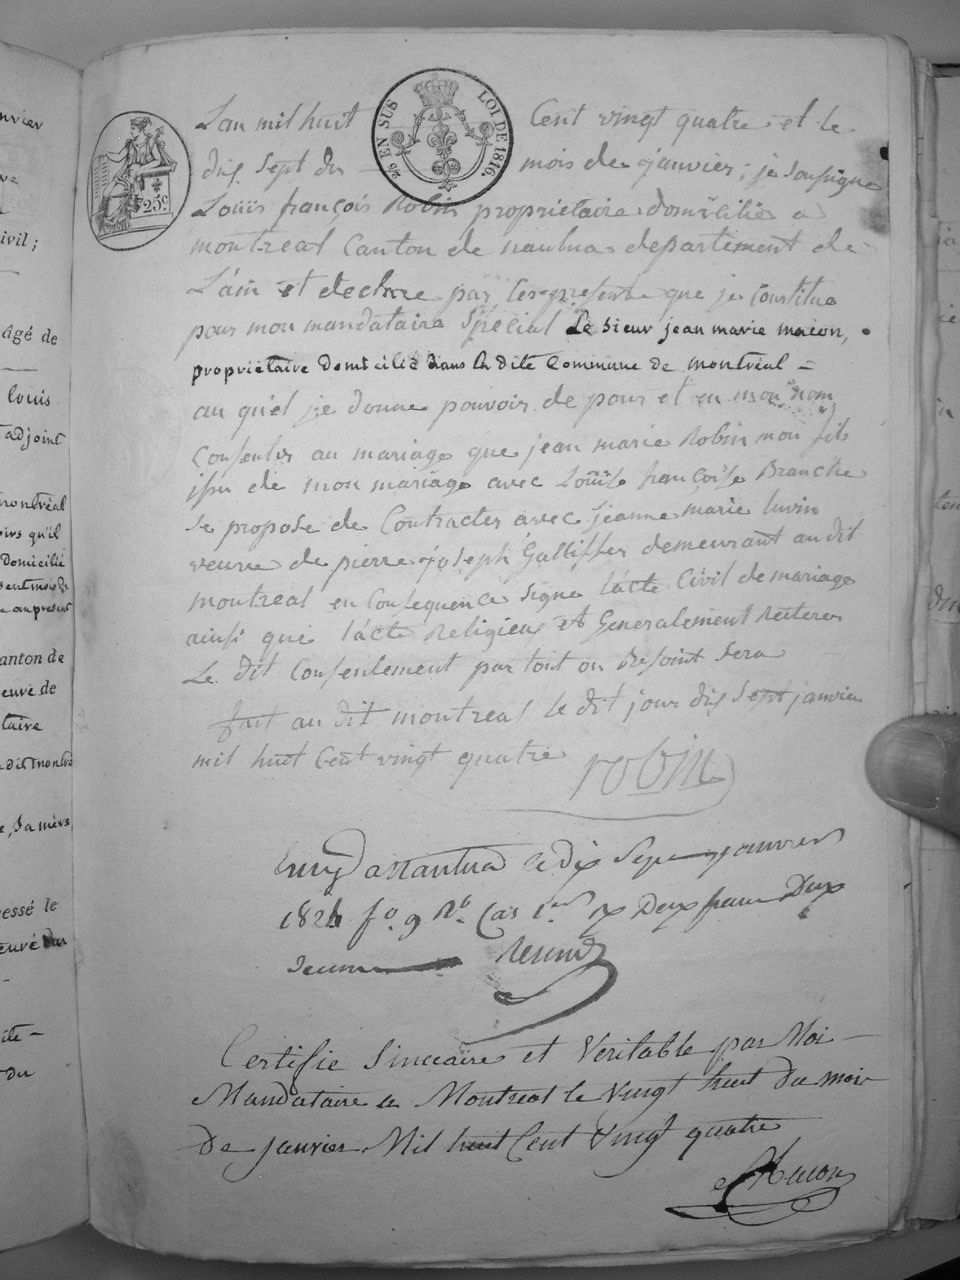 nvier
ivil;
Agé de
louis
adjoint
montréal
oirs qu'il
Domicilié
au present
anton de
euve de
taire
a dit montréal
e, sa mère,
essé le
du
25 EN SUS
LOI DE 1816.
25c
L'an mil huit Cent vingt quatre et le
dix Sept du mois de janvier; je Soussigne
Louis françois Robin propriétaire domicilié a
montreal Canton de nantua departement de
L'ain et declare par ces presente que je Constitue
pour mon mandataire Spécial Le sieur jean marie macon,
propriétaire domicilié dans la dite Commune de montréal =
au quel je donne pouvoir de pour et en mon nom
Consentir au mariage que jean marie Robin mon fils
issu de mon mariage avec Louise françoise Branche
se propose de Contracter avec jeanne marie
veuve de pierre joseph Galliffet demeurant au dit
montreal en Consequence signe l'acte Civil de mariage
ainsi que l'acte Religieux et Generalement Reiterer
Le dit Consentement par tout ou Besoint Sera
fait au dit montreal le dit jour dix Sept janvier
mil huit Cent vingt quatre robin
Enreg a Nantua le dix Sept janvier
1824 fo. 9 Ro. Cas 1ere Deux francs Deux
decime
Certifie Sinceaire et Veritable par Moi
Mandataire a Montreal le Vingt huit du mois
De janvier Mil huit Cent Vingt quatre
Macon